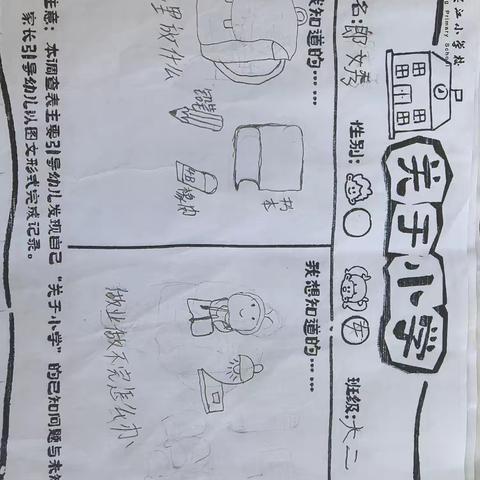 江小学校
Primary School
关于小学
名:郎文秀
性别:
班级:大二
我知道的……
里放什么
铅笔
书本
橡巾
我想知道的……
做业做不完怎么办
注意:本调查表主要引导幼儿发现自己“关于小学”的已知问题与未知
家长引导幼儿以图文形式完成记录。